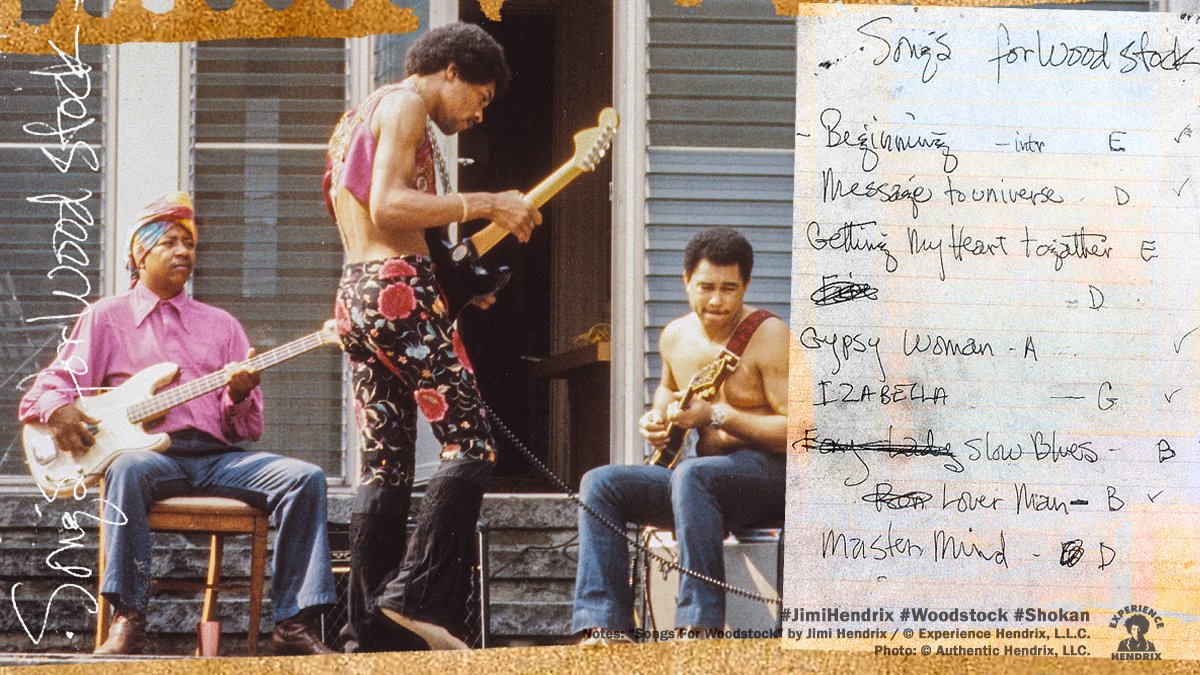 Songs for Wood Stock
Songs for Wood Stock
- Beginning - intr E ✓
Message to universe - D ✓
Getting My Heart togather E
- D
Gypsy Woman - A ✓
IZABELLA — G ✓
Foxy Lady Slow Blues - B
Lover Man - B ✓
Master Mind - D
#JimiHendrix #Woodstock #Shokan
Notes: "Songs For Woodstock" by Jimi Hendrix / © Experience Hendrix, L.L.C.
Photo: © Authentic Hendrix, LLC.
EXPERIENCE
HENDRIX